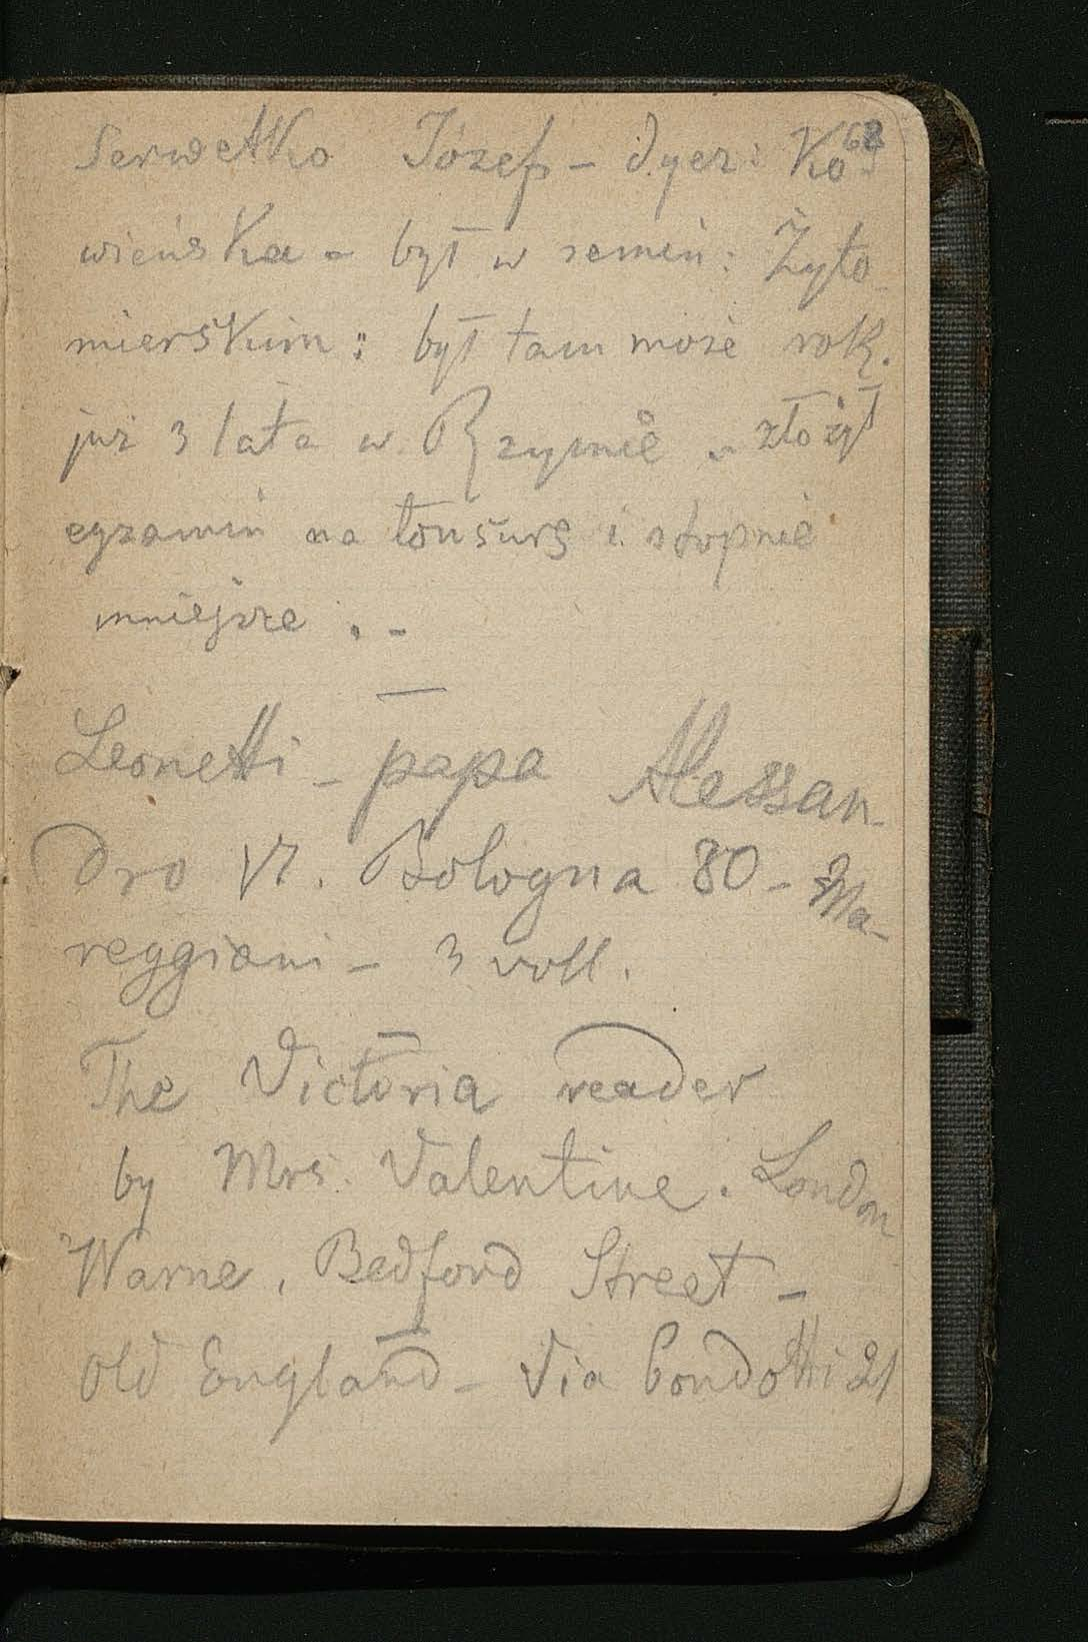 68
Serwetko Józef – dyez: Ko
wieńska – był w semin: Żyto
mierskim: był tam może rok.
już 3 lata w Rzymie – złożył
egzamin na tonsurę i stopnie
mniejsze . –
Leonetti – papa Alessan-
dro VI. Bologna 80 – Ma-
reggiani – 3 voll.
The Victoria reader
by Mrs. Valentine. London
Warne, Bedford Street –
Old England – Via Condotti 21